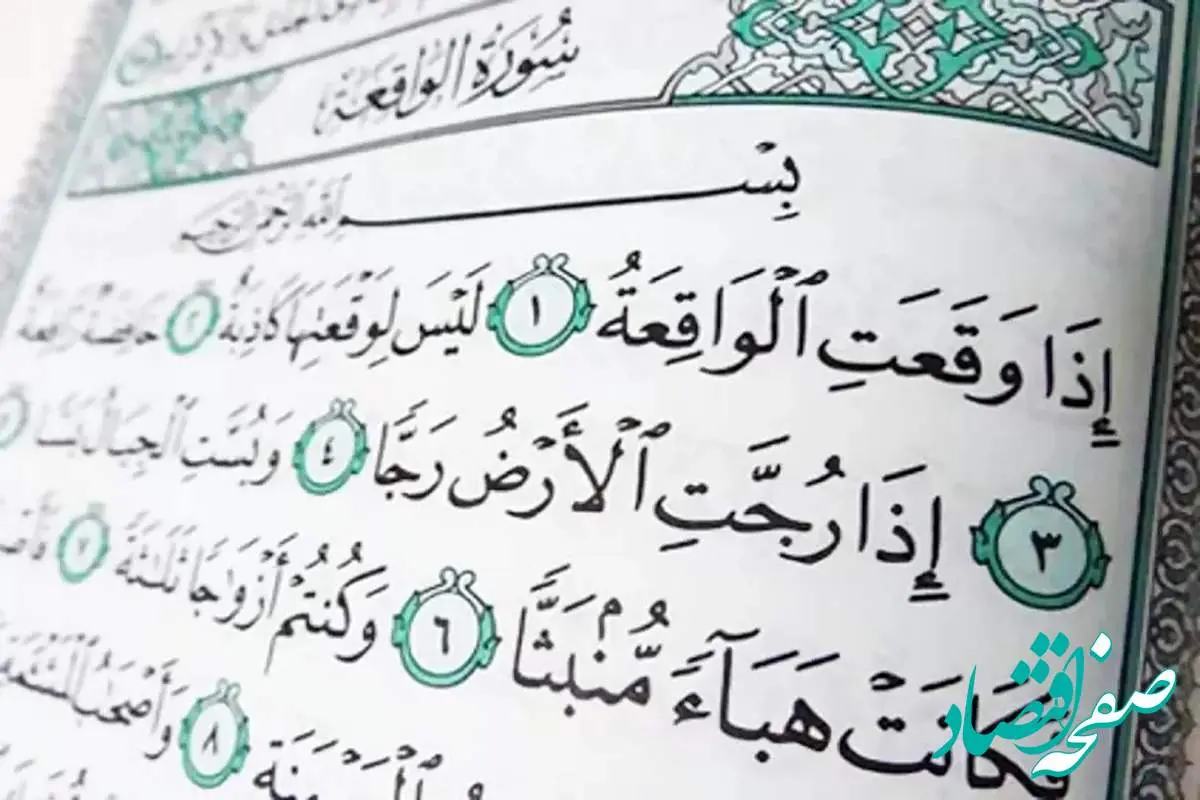 سُورَةُ الوَاقِعَةِ
بِسْمِ اللَّهِ الرَّحْمَٰنِ الرَّحِيمِ
إِذَا وَقَعَتِ ٱلْوَاقِعَةُ ١ لَيْسَ لِوَقْعَتِهَا كَاذِبَةٌ ٢ خَافِضَةٌ رَّافِعَةٌ
٣ إِذَا رُجَّتِ ٱلْأَرْضُ رَجًّا ٤ وَبُسَّتِ ٱلْجِبَالُ بَسًّا
فَكَانَتْ هَبَآءً مُّنۢبَثًّا ٦ وَكُنتُمْ أَزْوَٰجًا ثَلَٰثَةً ٧
٨ وَأَصْحَٰبُ
صفحه اقتصاد